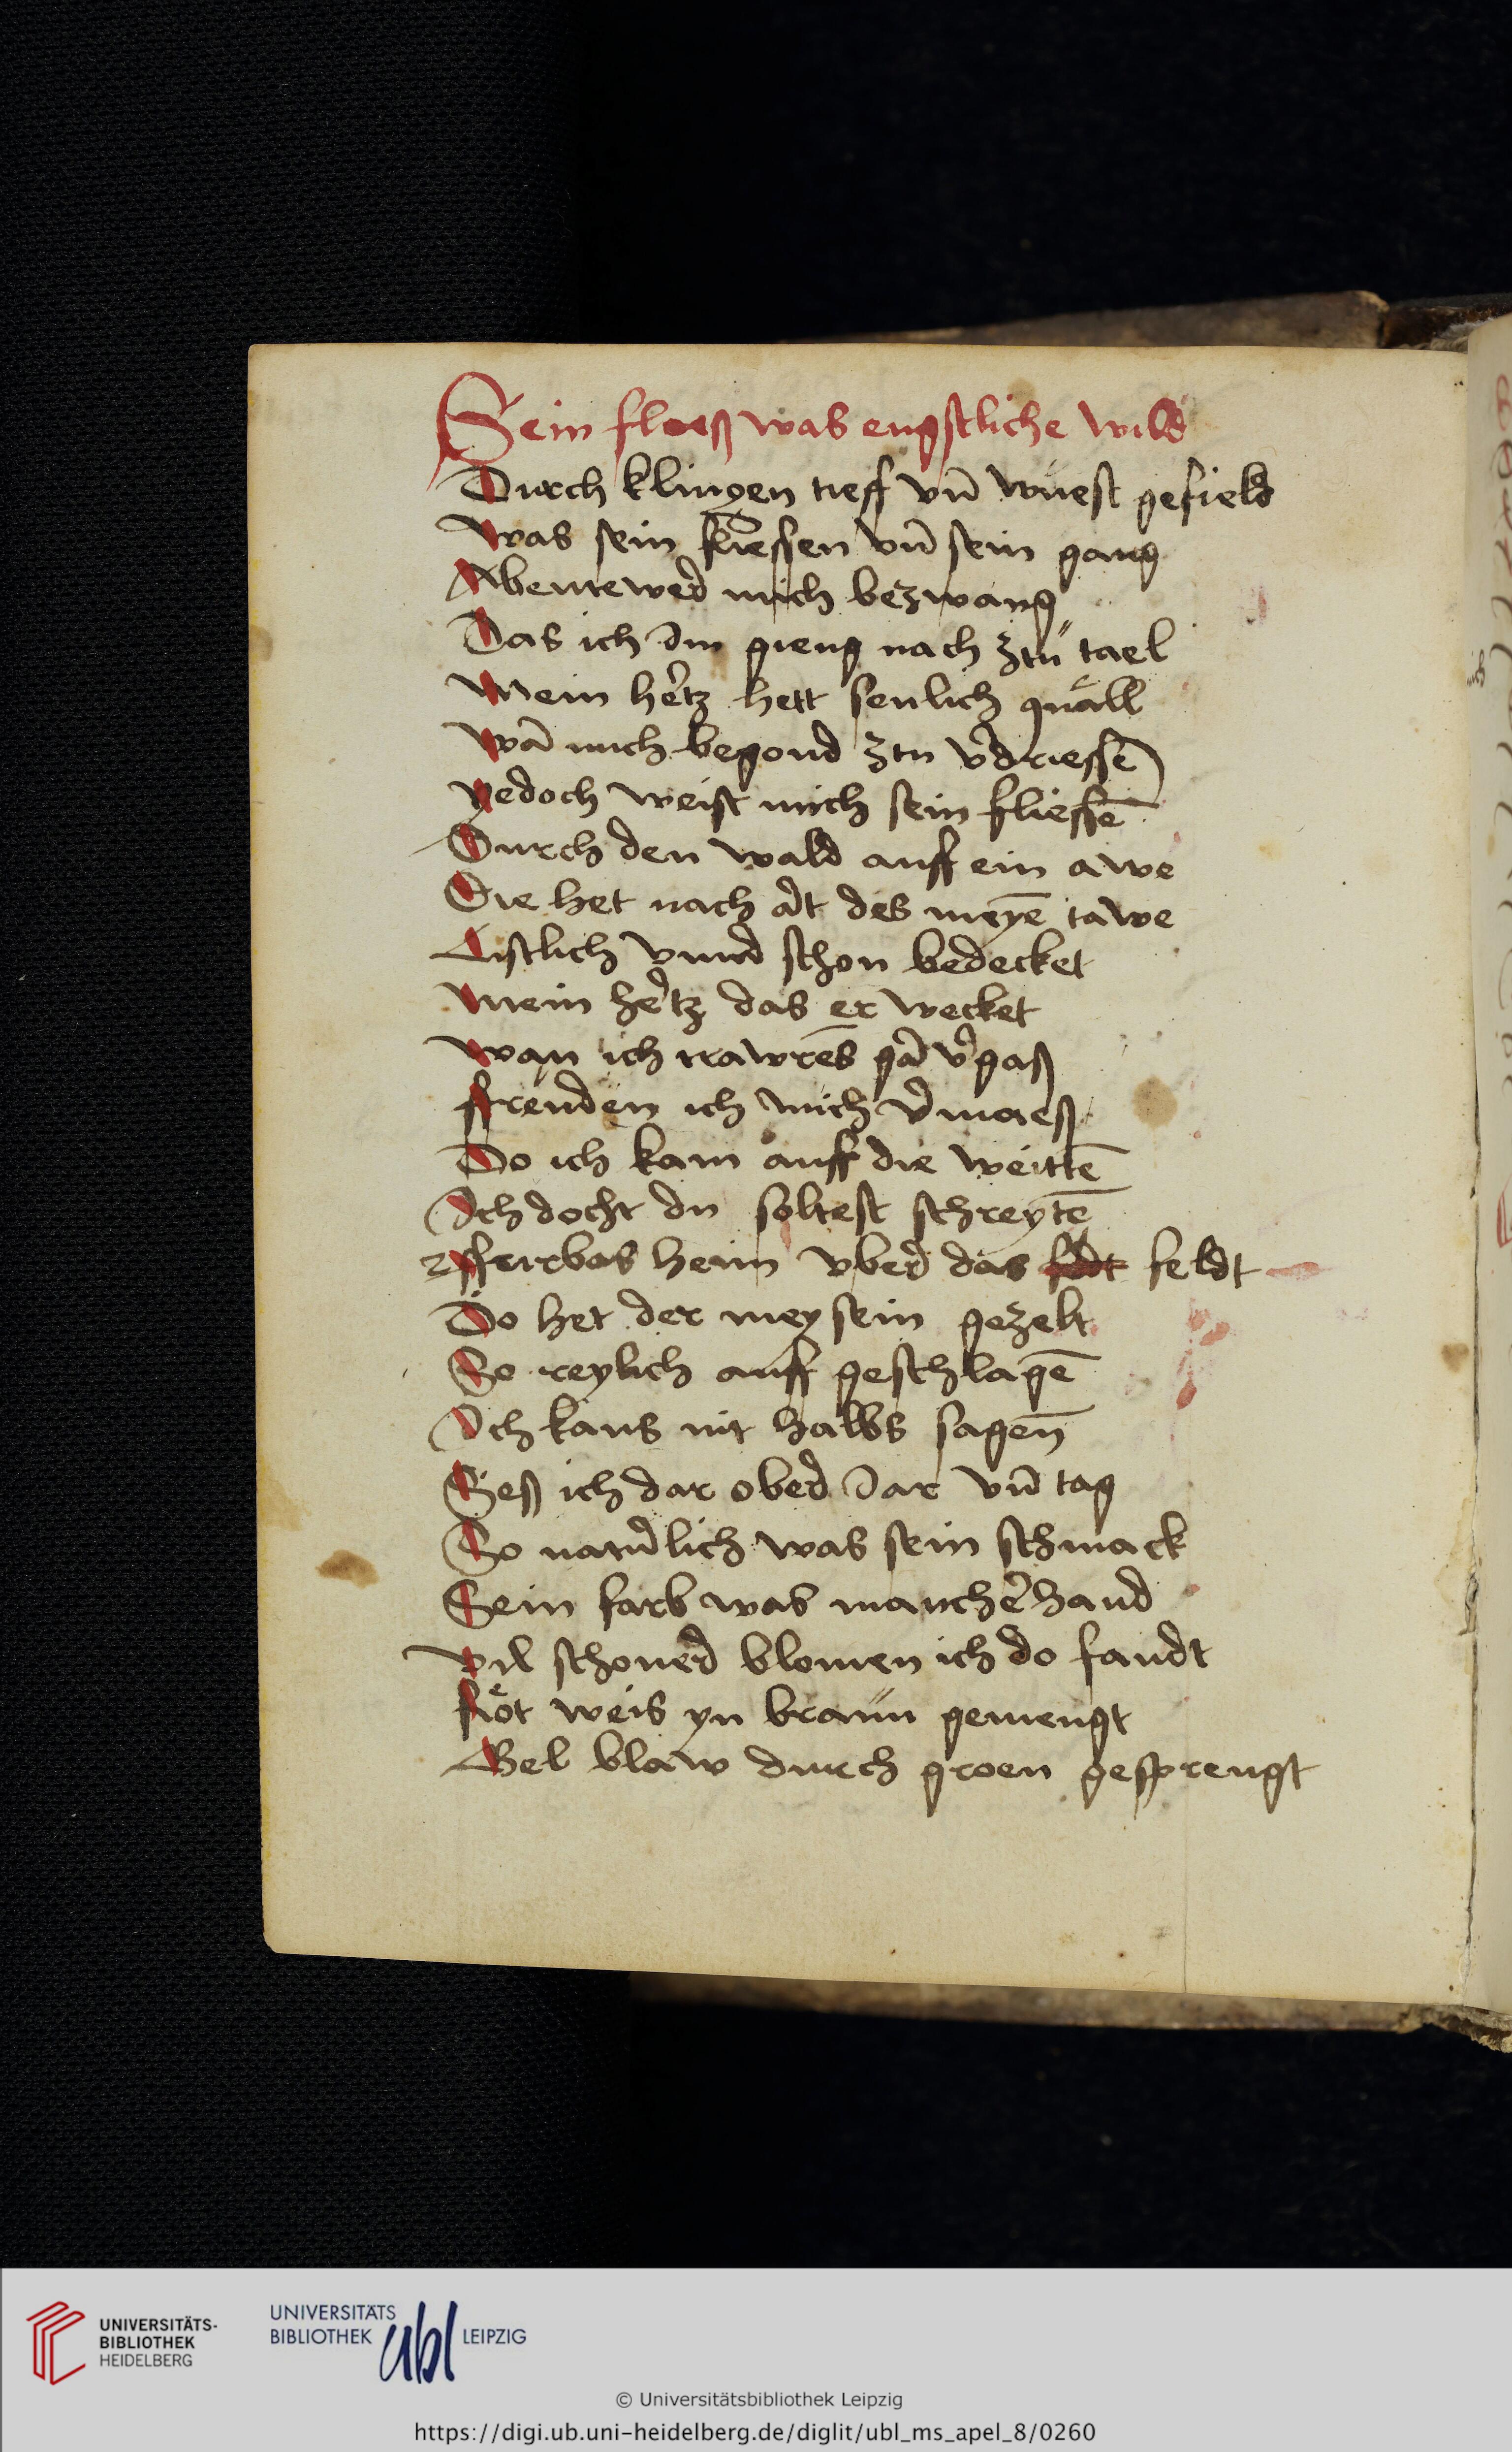 Sein floeß was engstliche wild
Durch klingen tieff vn̄ wuest gefield
Was sein fliessen vn̄ sein gang
Abentewer mich bezwang
Das ich im gieng nach ztu tael
Mein hertz hett senlich quall
Wan̄ mich begond ztu v̓driessē
yedoch weist mich sein fliessē
Durch den wald auff ein awe
Die het nach art des meyē tawe
Listlich vnnd schon bedecket
Mein hertz das er wecket
Wan ich trawrēs gar v̓gaß
ffreuden ich mich v̓maeß
Do ich kam auff die weittē
Ich docht du soltest schreytē
ffurbas hein vber das feldt
Do het der mey sein gezelt
So reylich auff geschlagē
Ich kans nit halbs sagen̄
Seß ich dar ober Jar vn̄ tag
So naturlich was sein schmack
Sein farb was mancherhand
vil schoner blomen ich do fandt
Rot weis yn braun gemengt
Gel blaw durch groen gesprengt
UNIVERSITÄTS-
BIBLIOTHEK
HEIDELBERG
UNIVERSITÄTS
BIBLIOTHEK ubl LEIPZIG
© Universitätsbibliothek Leipzig
https://digi.ub.uni-heidelberg.de/diglit/ubl_ms_apel_8/0260